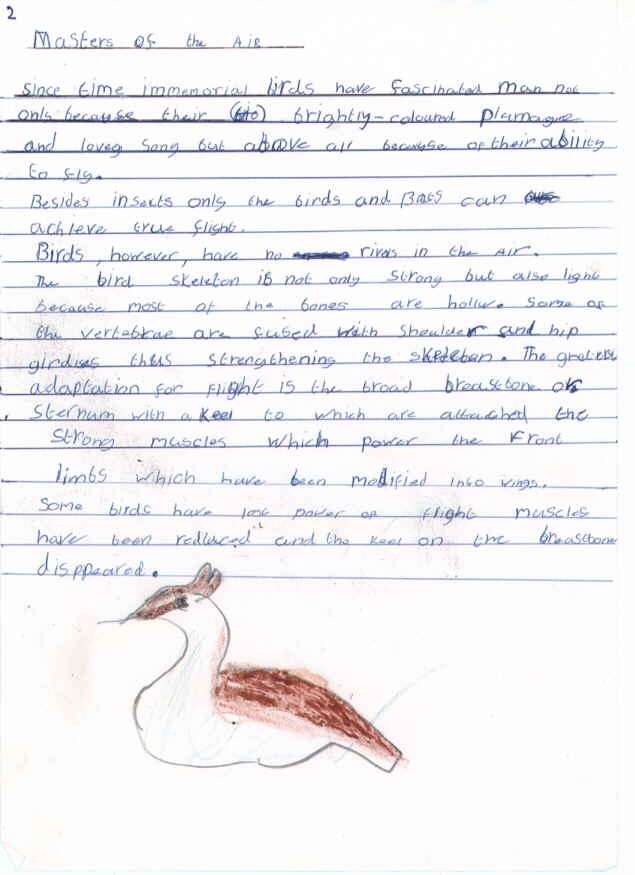 2
Masters of the Air
since time immemorial birds have fascinated man not
only because their brightly-coloured Plamagne
and lovey song but above all because of their ability
to fly.
Besides insects only the birds and Bats can
achieve true flight.
Birds, however, have no rivals in the Air.
The bird skeleton is not only strong but also light
because most of the bones are hollw. Some of
the vertebrae are fused with shoulder and hip
girdles thus strengthening the skeletan. The
adaptation for flight is the broad breastbone or
Sternum with a keel to which are attached the
strong muscles which power the front
limbs which have been modified into wings.
Some birds have lost power of flight muscles
have been reduced and the keel on the breastbone
disppeared.